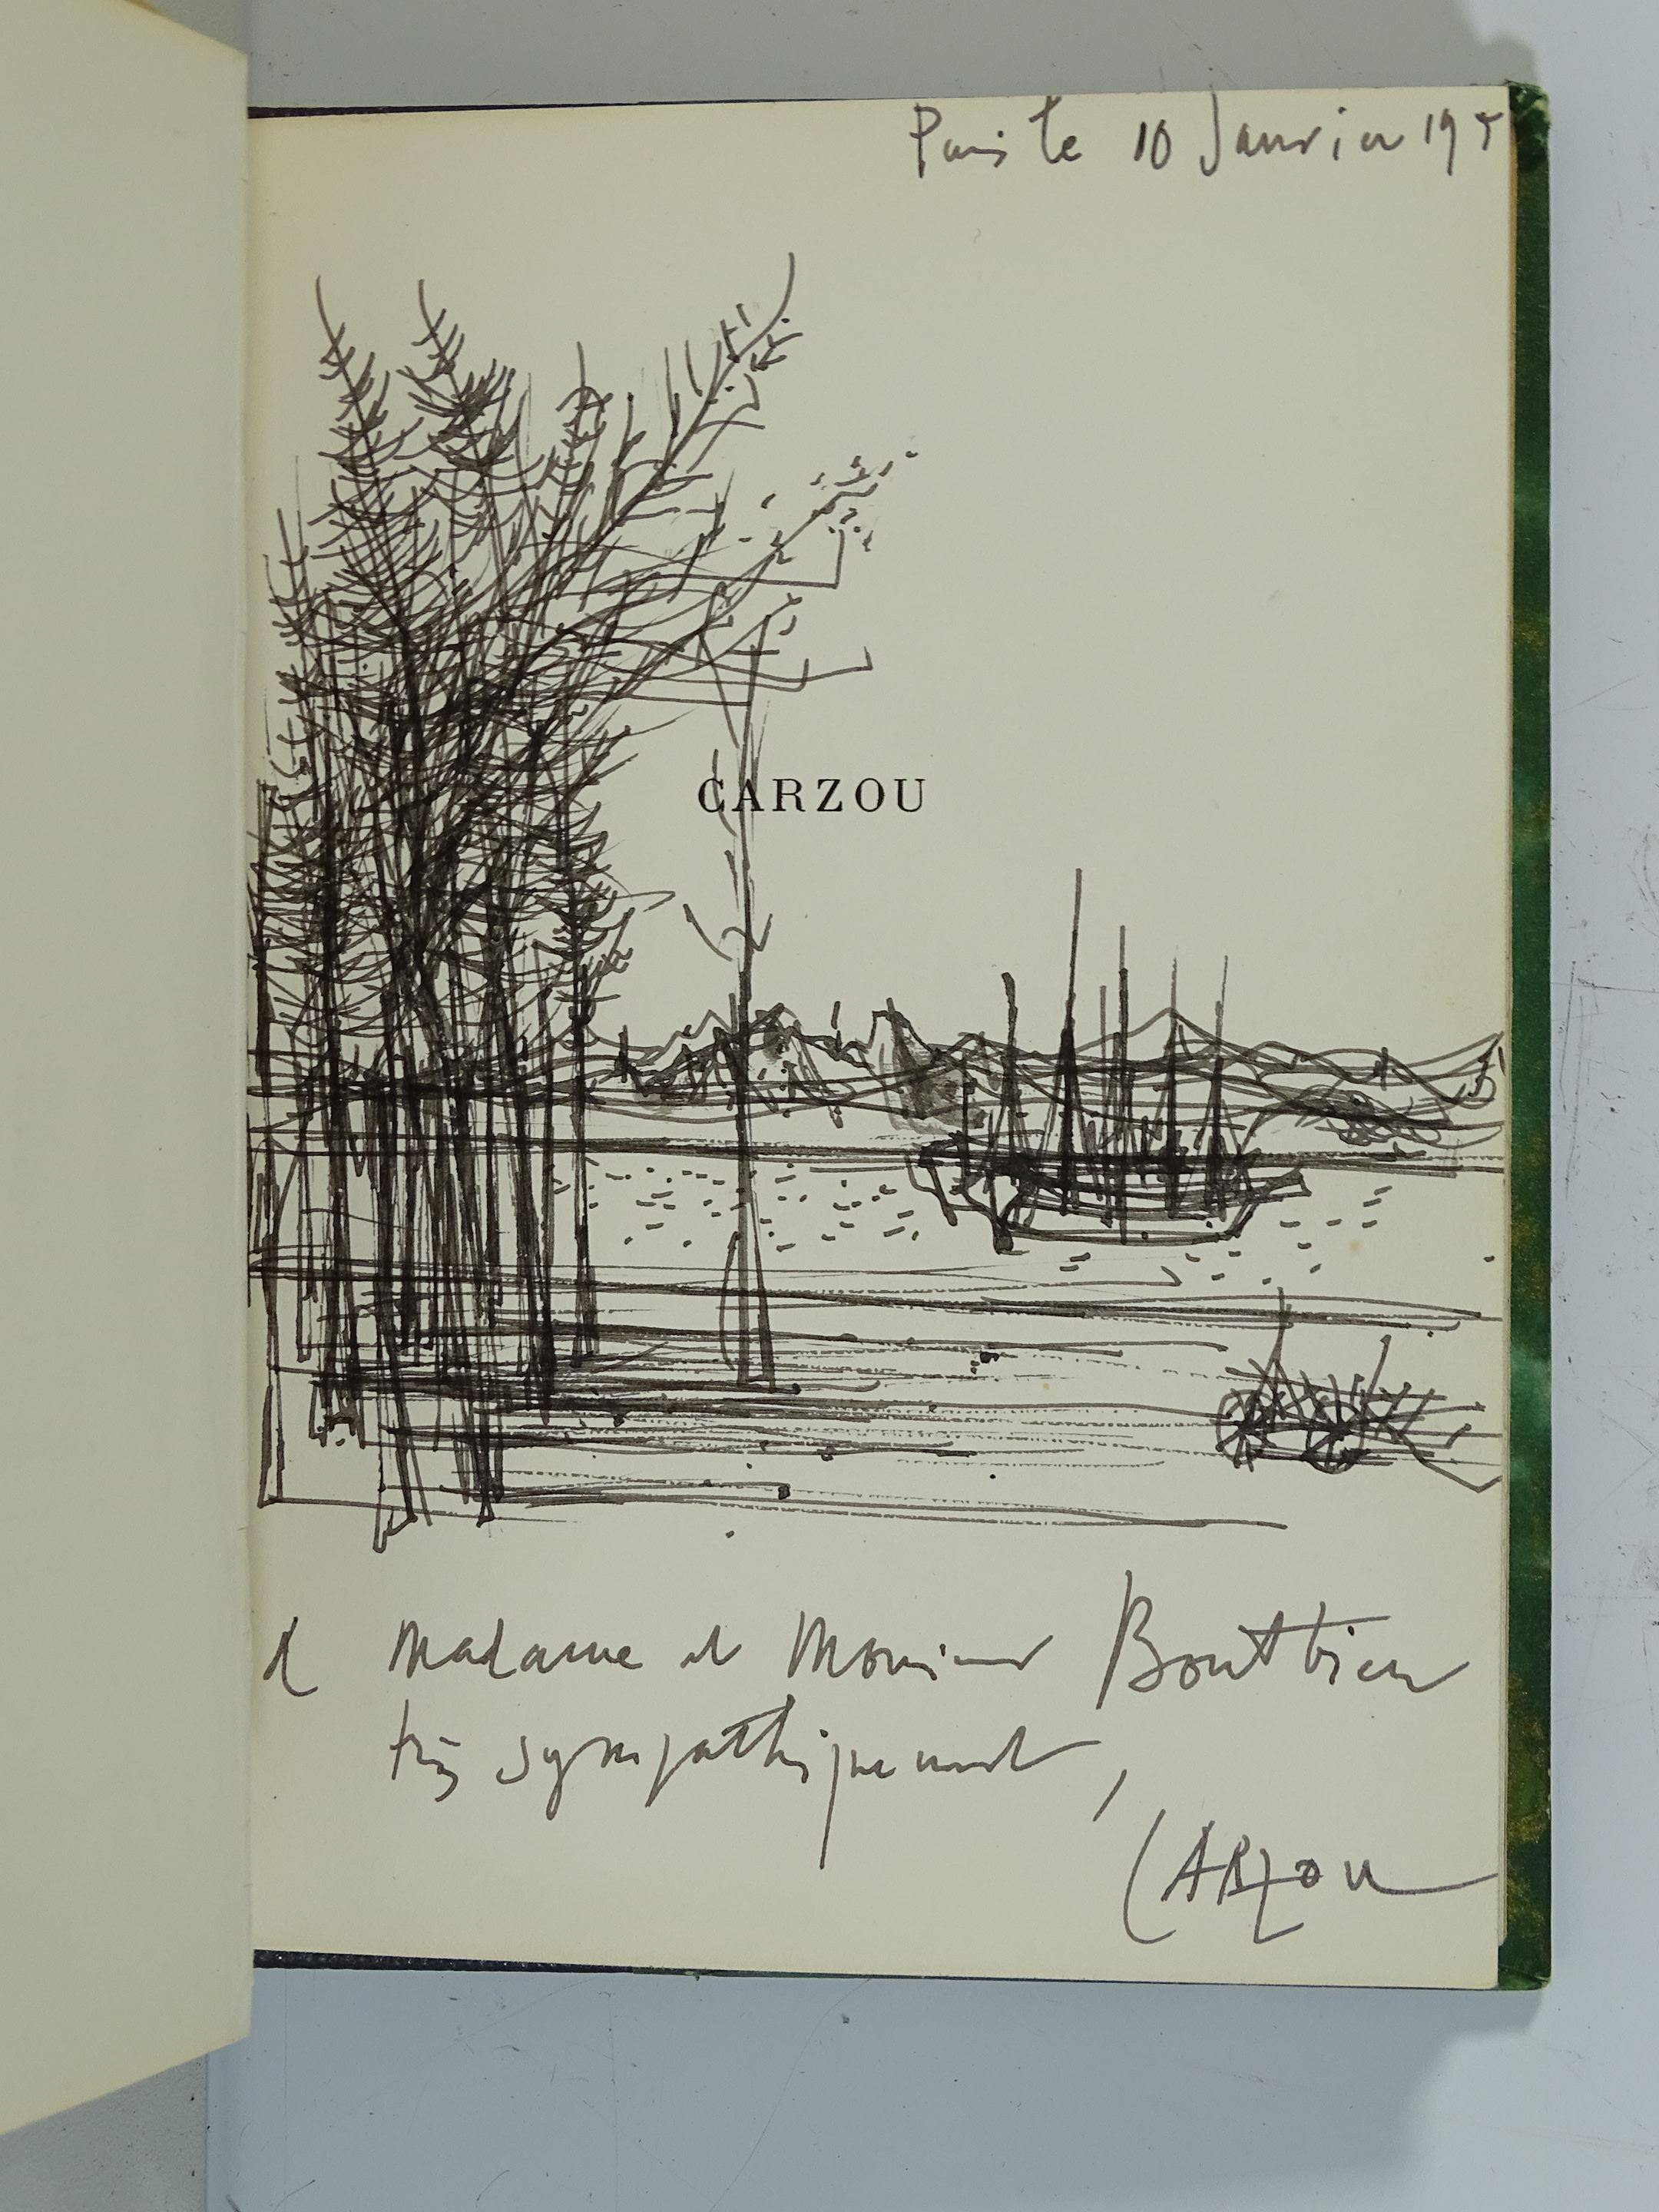 Paris le 10 Janvier 195
CARZOU
à Madame et Monsieur Boutthieu
très sympathiquement,
CARZOU